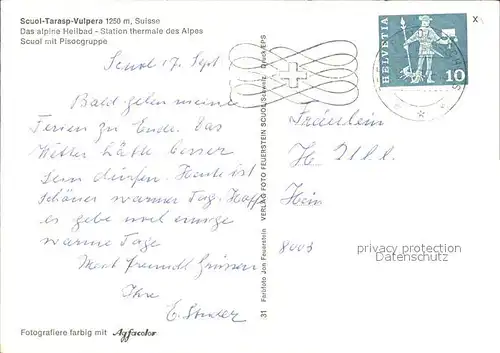 Scuol-Tarasp-Vulpera 1250 m, Suisse
Das alpine Heilbad - Station thermale des Alpes
Scuol mit Pisocgruppe
Scuol 17. Sept
Bald gehen meine
Ferien zu Ende. Das
Wetter hätte besser
sein dürfen. Heute ist
schöner warmer Tag. Hoff
es gebe noch einige
warme Tage
Mit freundl. Grüssen
Ihre
E. Studer
Fotografiere farbig mit Agfacolor
31 Farbfoto Jon Feuerstein VERLAG FOTO FEUERSTEIN SCUOL/Schweiz
HELVETIA
10
x
Fräulein
8003
privacy protection
Datenschutz